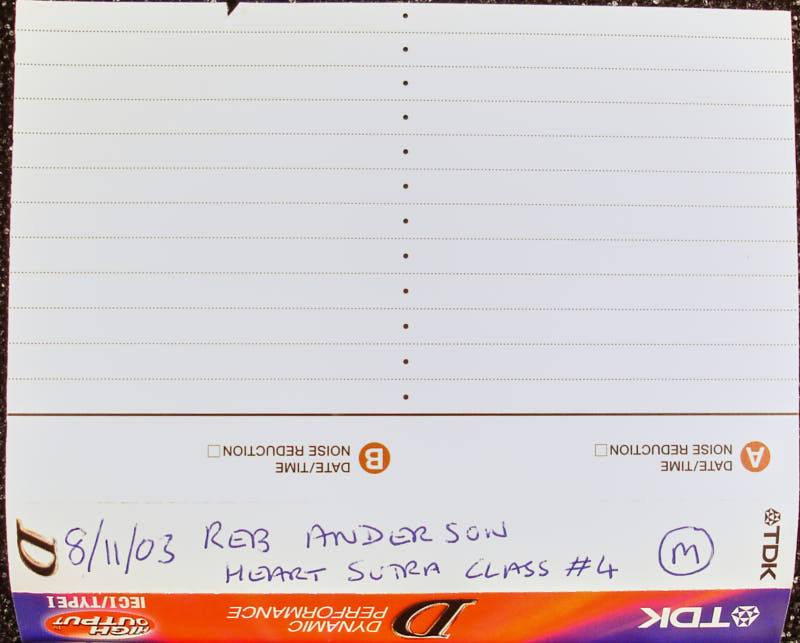 A DATE/TIME
NOISE REDUCTION
B DATE/TIME
NOISE REDUCTION
D
8/11/03 REB ANDERSON
HEART SUTRA CLASS #4
M
TDK
TDK
D DYNAMIC
PERFORMANCE
HIGH
OUTPUT
IECI/TYPEI